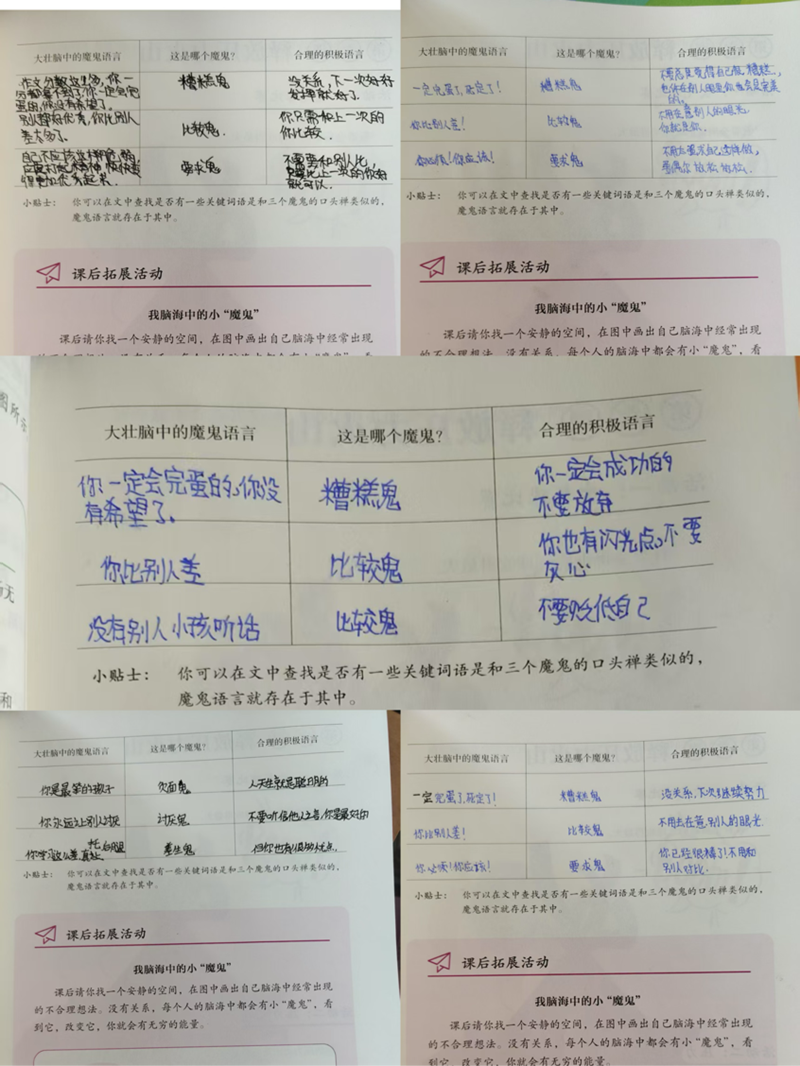 大壮脑中的魔鬼语言 这是哪个魔鬼? 合理的积极语言
作文分数这么多,你一
你一定会完
蛋的,你没有希望了。
糟糕鬼
没关系,下一次好好
发挥就好了。
别人都好优秀,你比别人
差太多了。
比较鬼
你只需和上一次的
你比较。
自己不应该这样
要求鬼
不需要和别人比,
只要比上一次的你好
就可以
小贴士: 你可以在文中查找是否有一些关键词语是和三个魔鬼的口头禅类似的,
魔鬼语言就存在于其中。
课后拓展活动
我脑海中的小“魔鬼”
课后请你找一个安静的空间,在图中画出自己脑海中经常出现
大壮脑中的魔鬼语言 这是哪个魔鬼? 合理的积极语言
一定完蛋了,死定了!
糟糕鬼
不要总是觉得自己很糟糕,
你比别人差!
比较鬼
不用在意别人的眼光,
你就是你.
你必须!你应该!
要求鬼
不用去要求自己这样做,
要偶尔放松放松.
小贴士: 你可以在文中查找是否有一些关键词语是和三个魔鬼的口头禅类似的,
魔鬼语言就存在于其中。
课后拓展活动
我脑海中的小“魔鬼”
课后请你找一个安静的空间,在图中画出自己脑海中经常出现
的不合理想法。没有关系,每个人的脑海中都会有小“魔鬼”,看
大壮脑中的魔鬼语言 这是哪个魔鬼? 合理的积极语言
你一定会完蛋的,你没
有希望了。
糟糕鬼
你一定会成功的
不要放弃
你比别人差
比较鬼
你也有闪光点。不要
灰心
没有别人小孩听话
比较鬼
不要贬低自己
小贴士: 你可以在文中查找是否有一些关键词语是和三个魔鬼的口头禅类似的,
魔鬼语言就存在于其中。
大壮脑中的魔鬼语言 这是哪个魔鬼? 合理的积极语言
你是最笨的孩子
负面鬼
人天生就是聪明的
你永远比别人
讨厌鬼
不要听信他人之言,你是最好的
你学习这么差,真
差生鬼
但你也有很多优点.
小贴士: 你可以在文中查找是否有一些关键词语是和三个魔鬼的口头禅类似的,
魔鬼语言就存在于其中。
课后拓展活动
我脑海中的小“魔鬼”
课后请你找一个安静的空间,在图中画出自己脑海中经常出现
的不合理想法。没有关系,每个人的脑海中都会有小“魔鬼”,看
到它,改变它,你就会有无穷的能量。
大壮脑中的魔鬼语言 这是哪个魔鬼? 合理的积极语言
一定完蛋了,死定了!
糟糕鬼
没关系,下次继续努力
你比别人差!
比较鬼
不用去在意别人的眼光
你必须!你应该!
要求鬼
你已经很棒了!不用和
别人对比.
小贴士: 你可以在文中查找是否有一些关键词语是和三个魔鬼的口头禅类似的,
魔鬼语言就存在于其中。
课后拓展活动
我脑海中的小“魔鬼”
课后请你找一个安静的空间,在图中画出自己脑海中经常出现
的不合理想法。没有关系,每个人的脑海中都会有小“魔鬼”,看
到它,改变它,你就会有无穷的能量。